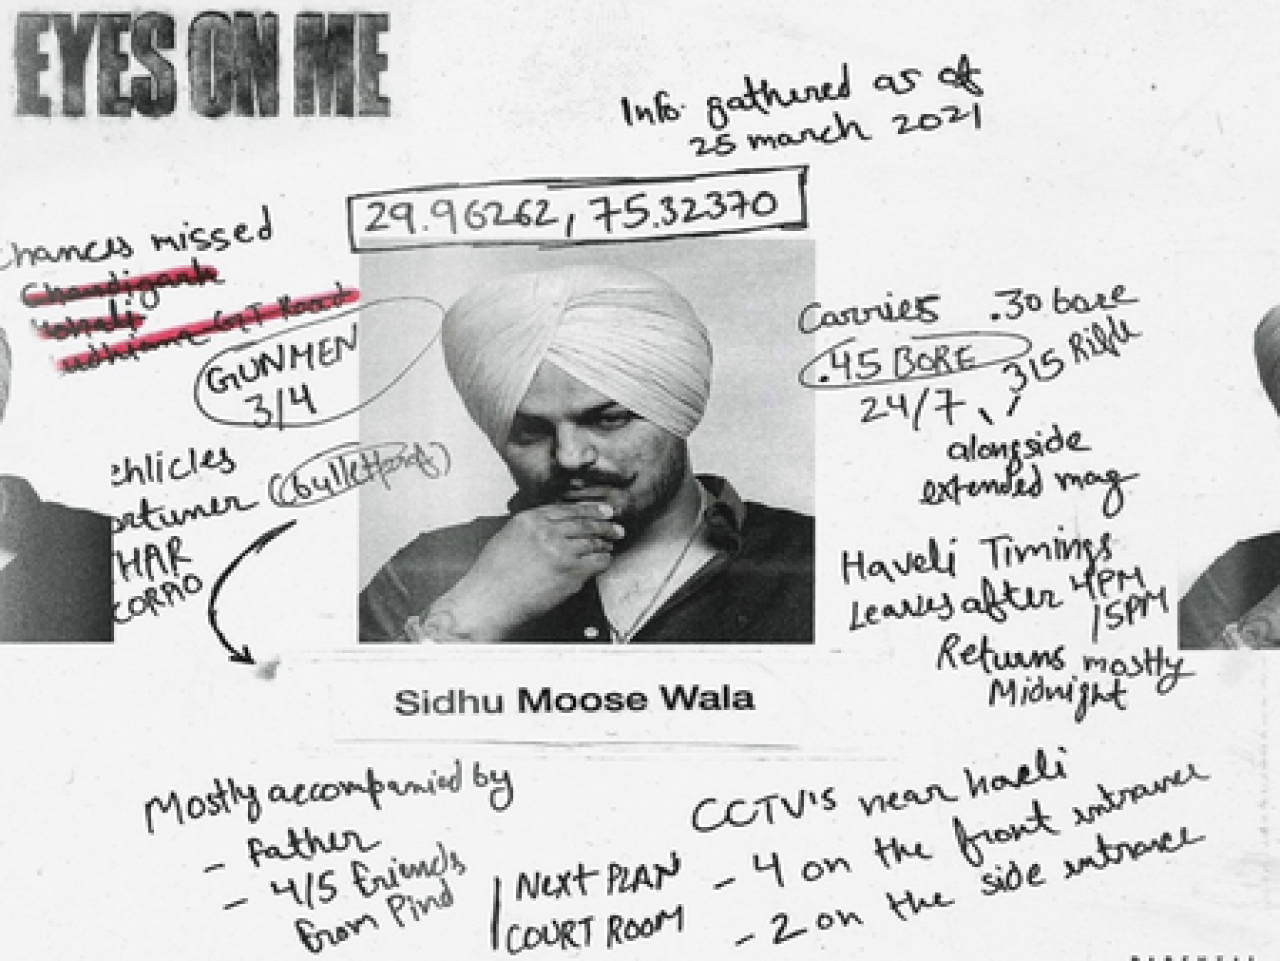 EYES ON ME
Info. gathered as of
25 march 2021
29.96262, 75.32370
hances missed
Chandigarh
ohali
udhiana GT Road
GUNMEN
3/4
ehlicles
ortuner (bulletproof)
HAR
CORPIO
Carries .30 bore
.45 BORE
315 Rifle
24/7
alongside
extended mag
Haveli Timings
Leaves after 4PM
/5PM
Returns mostly
Midnight
Sidhu Moose Wala
Mostly accompanied by
- Father
- 4/5 friends
from Pind
NEXT PLAN
COURT ROOM
CCTV'S near haveli
- 4 on the front entrance
- 2 on the side entrance